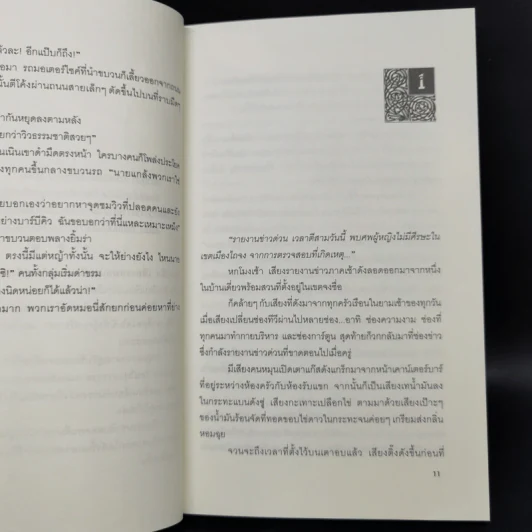 ล้วละ! อีกแป๊บก็ถึง!"
อมา รถมอเตอร์ไซค์ที่นำขบวนก็เลี้ยวออกจากถนน
นั้นตีโค้งผ่านถนนสายเล็กๆ ตัดขึ้นไปบนที่ราบ
ากันหยุดลงตามหลัง
ยกว่าวิวธรรมชาติสวยๆ"
นเนินเขาดำมืดตรงหน้า ใครบางคนก็โพล่งประโยค
งทุกคนขึ้นกลางขบวนรถ "นายแกล้งพวกเราใช่
ยบอกเองว่าอยากหาจุดชมวิวที่ปลอดคนและยัง
ย่างบาร์บีคิว ฉันขอบอกว่าที่นี่แหละเหมาะเหม็ง"
าขบวนตอบพลางยิ้มร่า
ตรงนี้มีแต่หญ้าทั้งนั้น จะให้ย่างยังไง ไหน
ซิ!" คนทั้งกลุ่มเริ่มด่าขรม
งนิดหน่อยก็ได้แล้วน่า!"
มาก พวกเราอัดหมอนี่สักยกก่อนค่อยหาที่ย่าง
1
"รายงานข่าวด่วน เวลาตีสามวันนี้ พบศพผู้หญิงไม่มีศีรษะใน
เขตเมืองไถจง จากการตรวจสอบที่เกิดเหตุ..."
หกโมงเช้า เสียงรายงานข่าวภาคเช้าดังลอดออกมาจากหนึ่ง
ในบ้านเดี่ยวพร้อมสวนที่ตั้งอยู่ในเขตจงซื่อ
ก็คล้ายๆ กับเสียงที่ดังมาจากทุกครัวเรือนในยามเช้าของทุกวัน
เมื่อเสียงเปลี่ยนช่องทีวีผ่านไปหลายช่อง...อาทิ ช่องความงาม ช่องที่
ทุกคนมาทำกายบริหาร และช่องการ์ตูน สุดท้ายก็วกกลับมาที่ช่องข่าว
ซึ่งกำลังรายงานข่าวด่วนที่ขาดตอนไปเมื่อครู่
มีเสียงคนหมุนเปิดเตาแก๊สดังแกริกมาจากหน้าเคาน์เตอร์บาร์
ที่อยู่ระหว่างห้องครัวกับห้องรับแขก จากนั้นก็เป็นเสียงเทน้ำมันลง
ในกระทะแบนดังซู่ เสียงกะเทาะเปลือกไข่ ตามมาด้วยเสียงเปาะๆ
ของน้ำมันร้อนจัดที่ทอดขอบไข่ดาวในกระทะจนค่อยๆ เกรียมส่งกลิ่น
หอมฉุย
จวนจะถึงเวลาที่ตั้งไว้บนเตาอบแล้ว เสียงติ๊งดังขึ้นก่อนที่
11